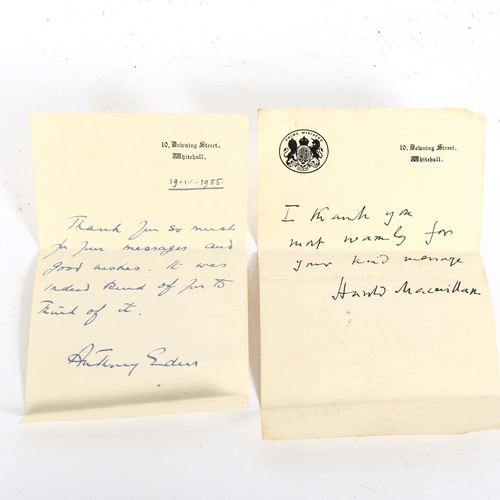 10, Downing Street,
Whitehall.
19-IV-1955.
Thank you so much
for your messages and
good wishes. It was
indeed kind of you to
think of it.
Anthony Eden
PRIME MINISTER
10, Downing Street,
Whitehall.
I thank you
most warmly for
your kind message
Harold Macmillan